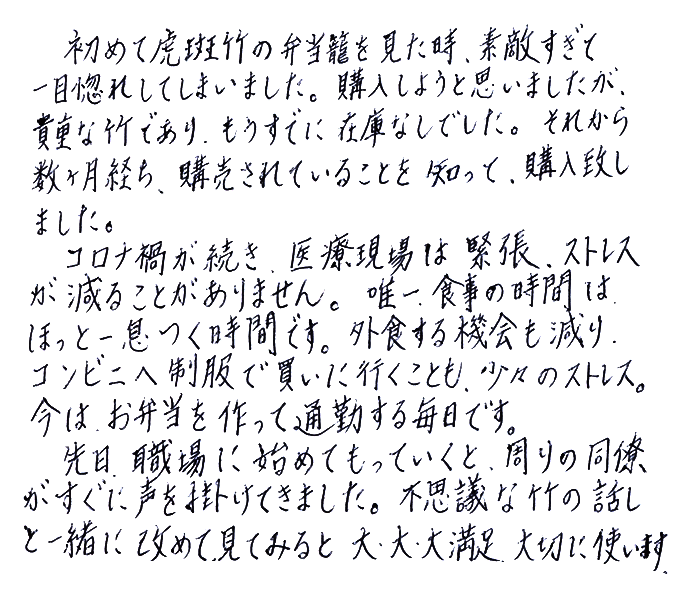 初めて虎斑竹の弁当籠を見た時、素敵すぎて
一目惚れしてしまいました。購入しようと思いましたが、
貴重な竹であり、もうすでに在庫なしでした。それから
数ヶ月経ち、購売されていることを知って、購入致し
ました。
コロナ禍が続き、医療現場は緊張、ストレス
が減ることがありません。唯一、食事の時間は、
ほっと一息つく時間です。外食する機会も減り、
コンビニへ制服で買いに行くことも、少々のストレス。
今は、お弁当を作って通勤する毎日です。
先日、職場に始めてもっていくと、周りの同僚
がすぐに声を掛けてきました。不思議な竹の話し
と一緒に改めて見てみると大・大・大満足。大切に使います。